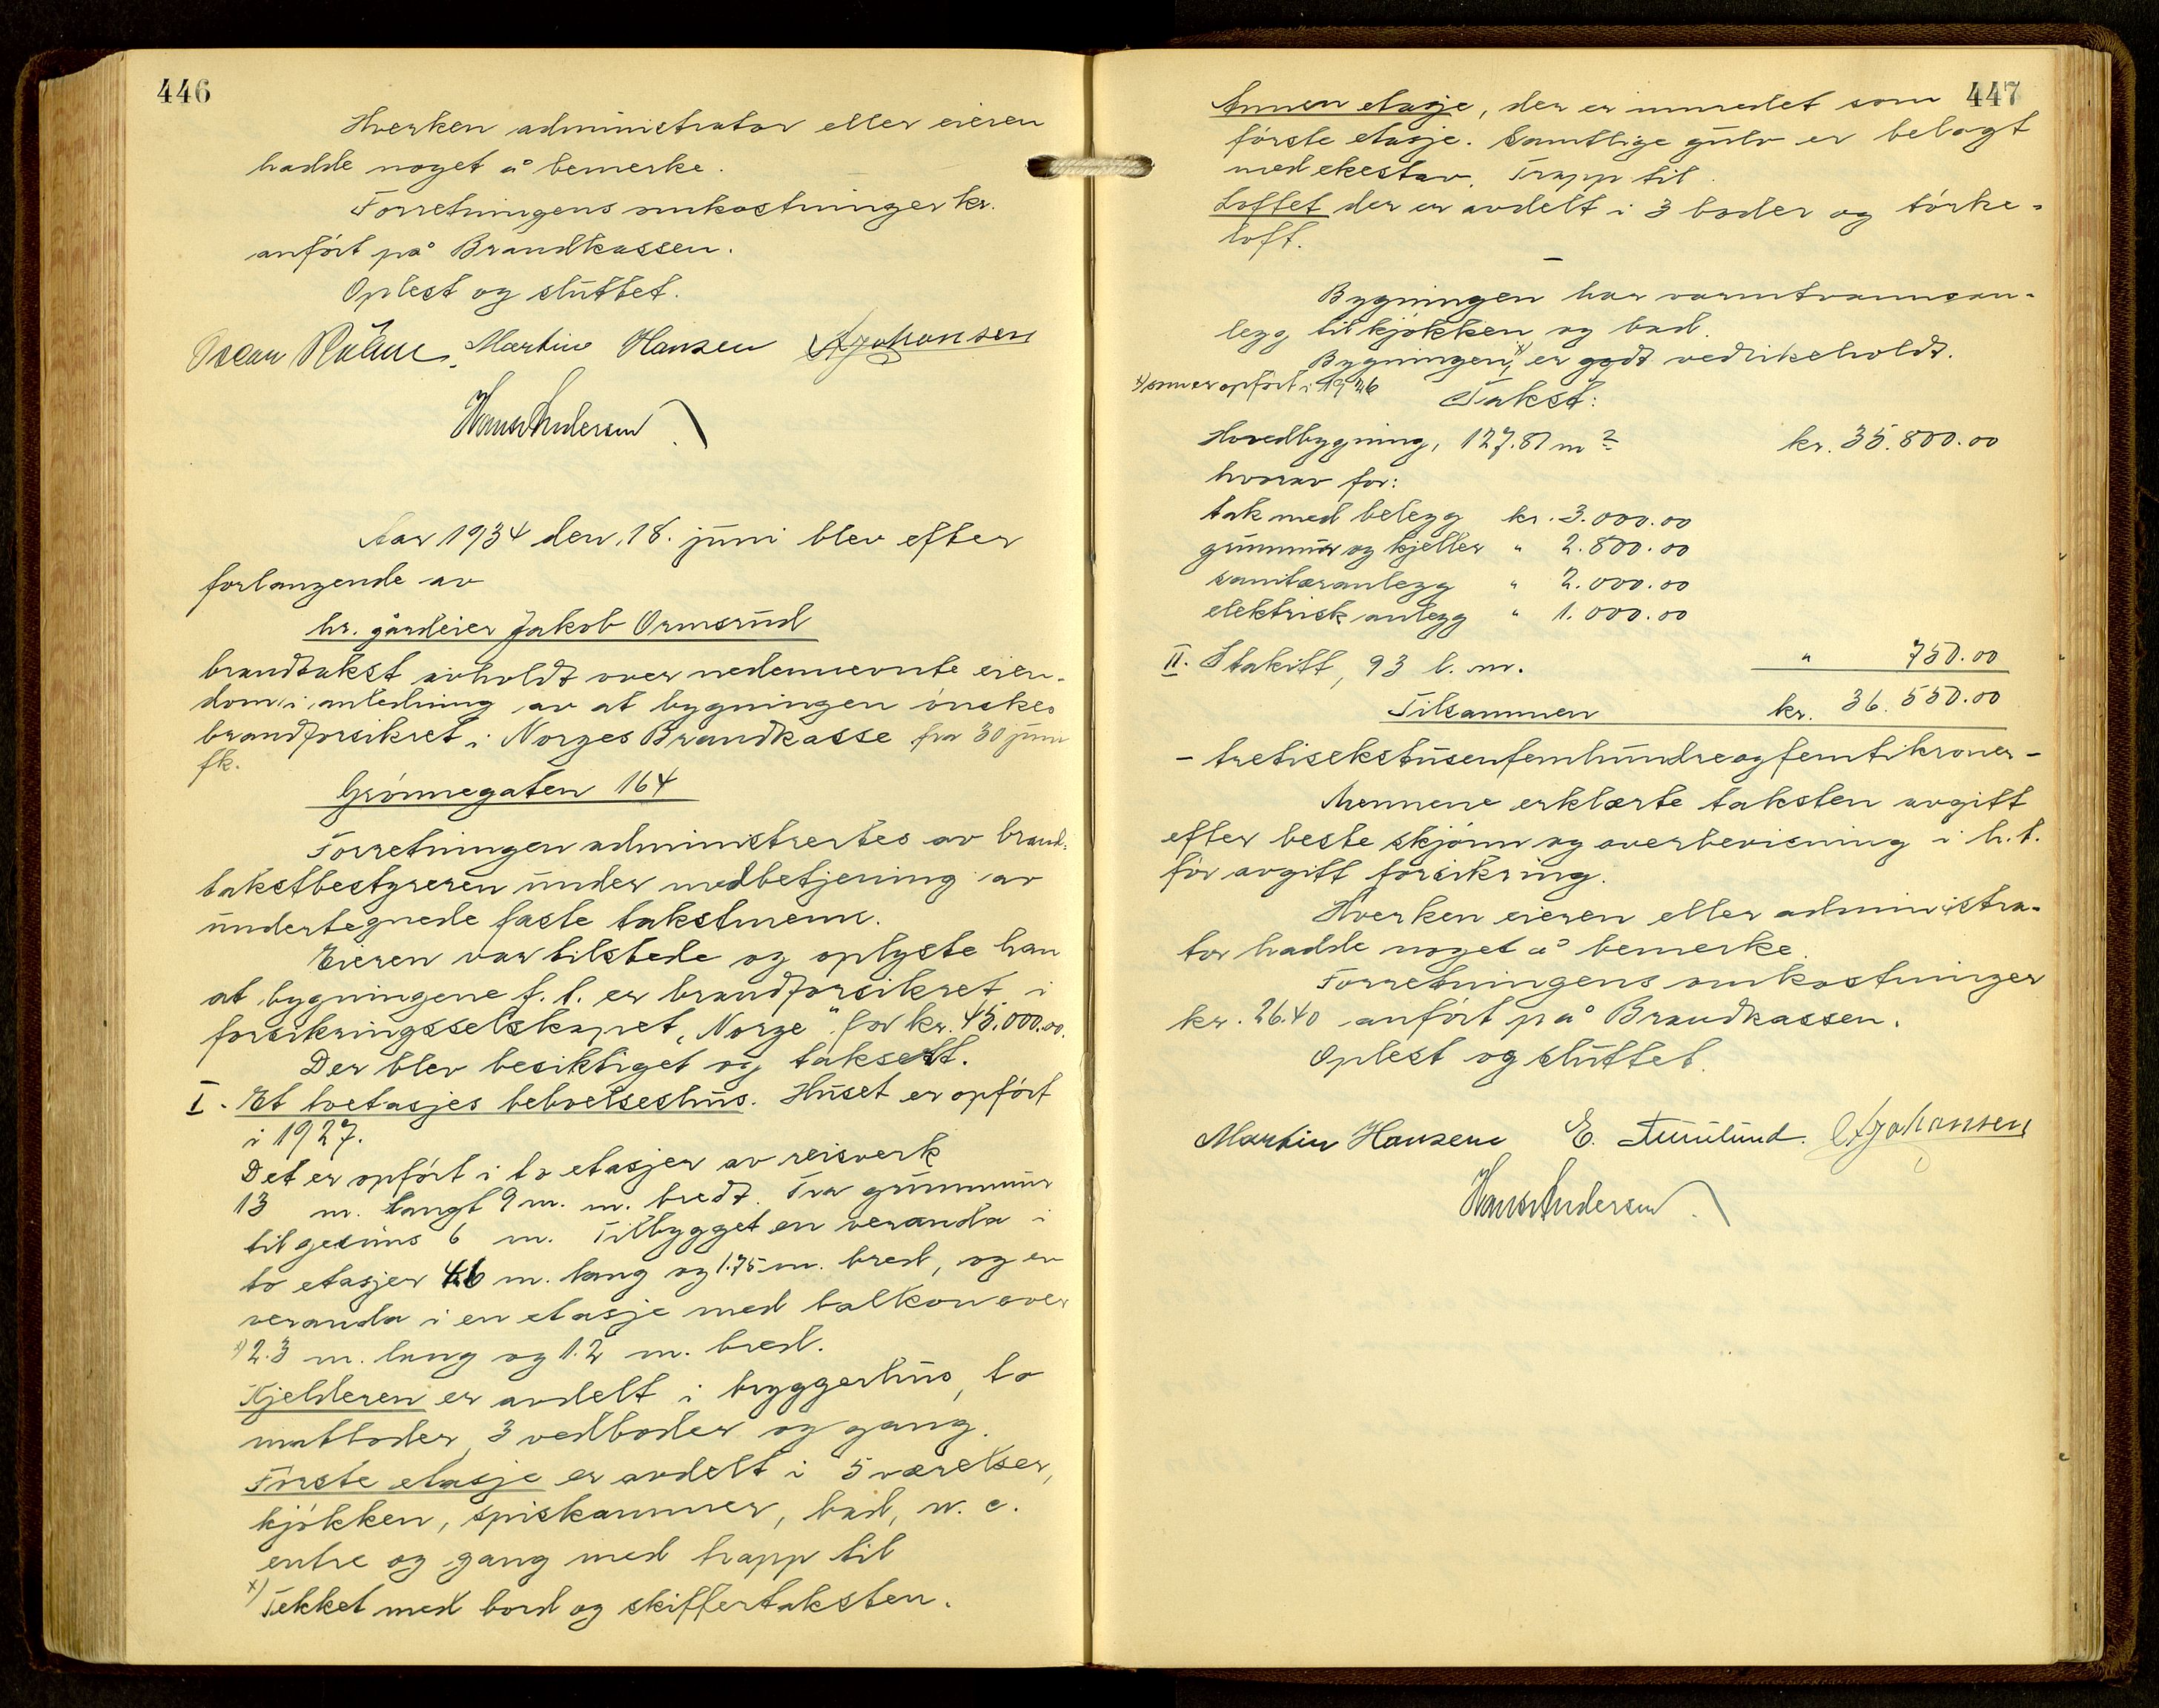 446
Hverken administrator eller eieren
hadde noget å bemerke.
Forretningens omkostninger kr.
anført på Brandkassen.
Oplest og sluttet.
Oscar Martin Hansen A Johansen
Hans Andersen
Aar 1934 den 18. juni blev efter
forlangende av
hr. gårdeier Jakob Ormsrud
brandtakst avholdt over nedennevnte eien-
dom i anledning av at bygningen ønskes
brandforsikret i Norges Brandkasse fra 30 juni
fk.
Grønnegaten 164
Forretningen administrertes av brand-
takstbestyreren under medbetjening av
undertegnede faste takstmenn.
Eieren var tilstede og oplyste han
at bygningene f. t. er brandforsikret i
forsikringsselskapet „Norge" for kr. 45.000.00.
Der blev besiktiget og taksert.
I. Et toetasjes beboelseshus. Huset er opført
i 1927.
Det er opført i to etasjer av reisverk
13 m. langt 9 m. m. bredt. Fra grunnmur
til gesims 6 m. Tilbygget en veranda i
to etasjer 4.6 m. lang og 1.75 m. bred, og en
veranda i en etasje med balkon over
x) 2.3 m. lang og 1.2 m. bred.
Kjelderen er avdelt i bryggerhus, to
matboder, 3 vedboder og gang.
Første etasje er avdelt i 5 værelser,
kjøkken, spiskammer, bad, w. c.
entre og gang med trapp til
x) Tekket med bord og skiffertaksten.
447
Annen etasje, der er innredet som
første etasje. Samtlige gulv er belagt
med ekestav. Trapp til
Loftet der er avdelt i 3 boder og tørke-
loft.
Bygningen har varmtvannsan-
legg til kjøkken og bad.
Bygningen, x) er godt vedlikeholdt.
x) som er opført i 1926
Takst:
Hovedbygning, 127.87 m²  kr. 35.800.00
hvorav for:
tak med belegg kr. 3.000.00
grunnmur og kjeller " 2.800.00
sanitæranlegg " 2.000.00
elektrisk anlegg " 1.000.00
II. Stakitt, 93 l. m. " 750.00
Tilsammen kr. 36.550.00
- trettisekstusenfemhundreogfemti kroner -
Mennene erklærte taksten avgitt
efter beste skjønn og overbevisning i h. t.
før avgitt forsikring.
Hverken eieren eller administra-
tor hadde noget å bemerke.
Forretningens omkostninger
kr. 26.40 anført på Brandkassen.
Oplest og sluttet.
Martin Hansen E. A Johansen
Hans Andersen